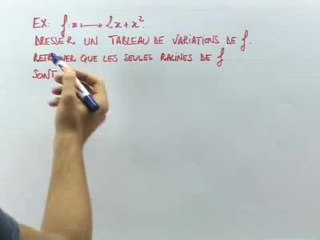 Ex: f: x ⟼ 2x + x².
DRESSER UN TABLEAU DE VARIATIONS DE f.
RETROUVER QUE LES SEULES RACINES DE f
SONT